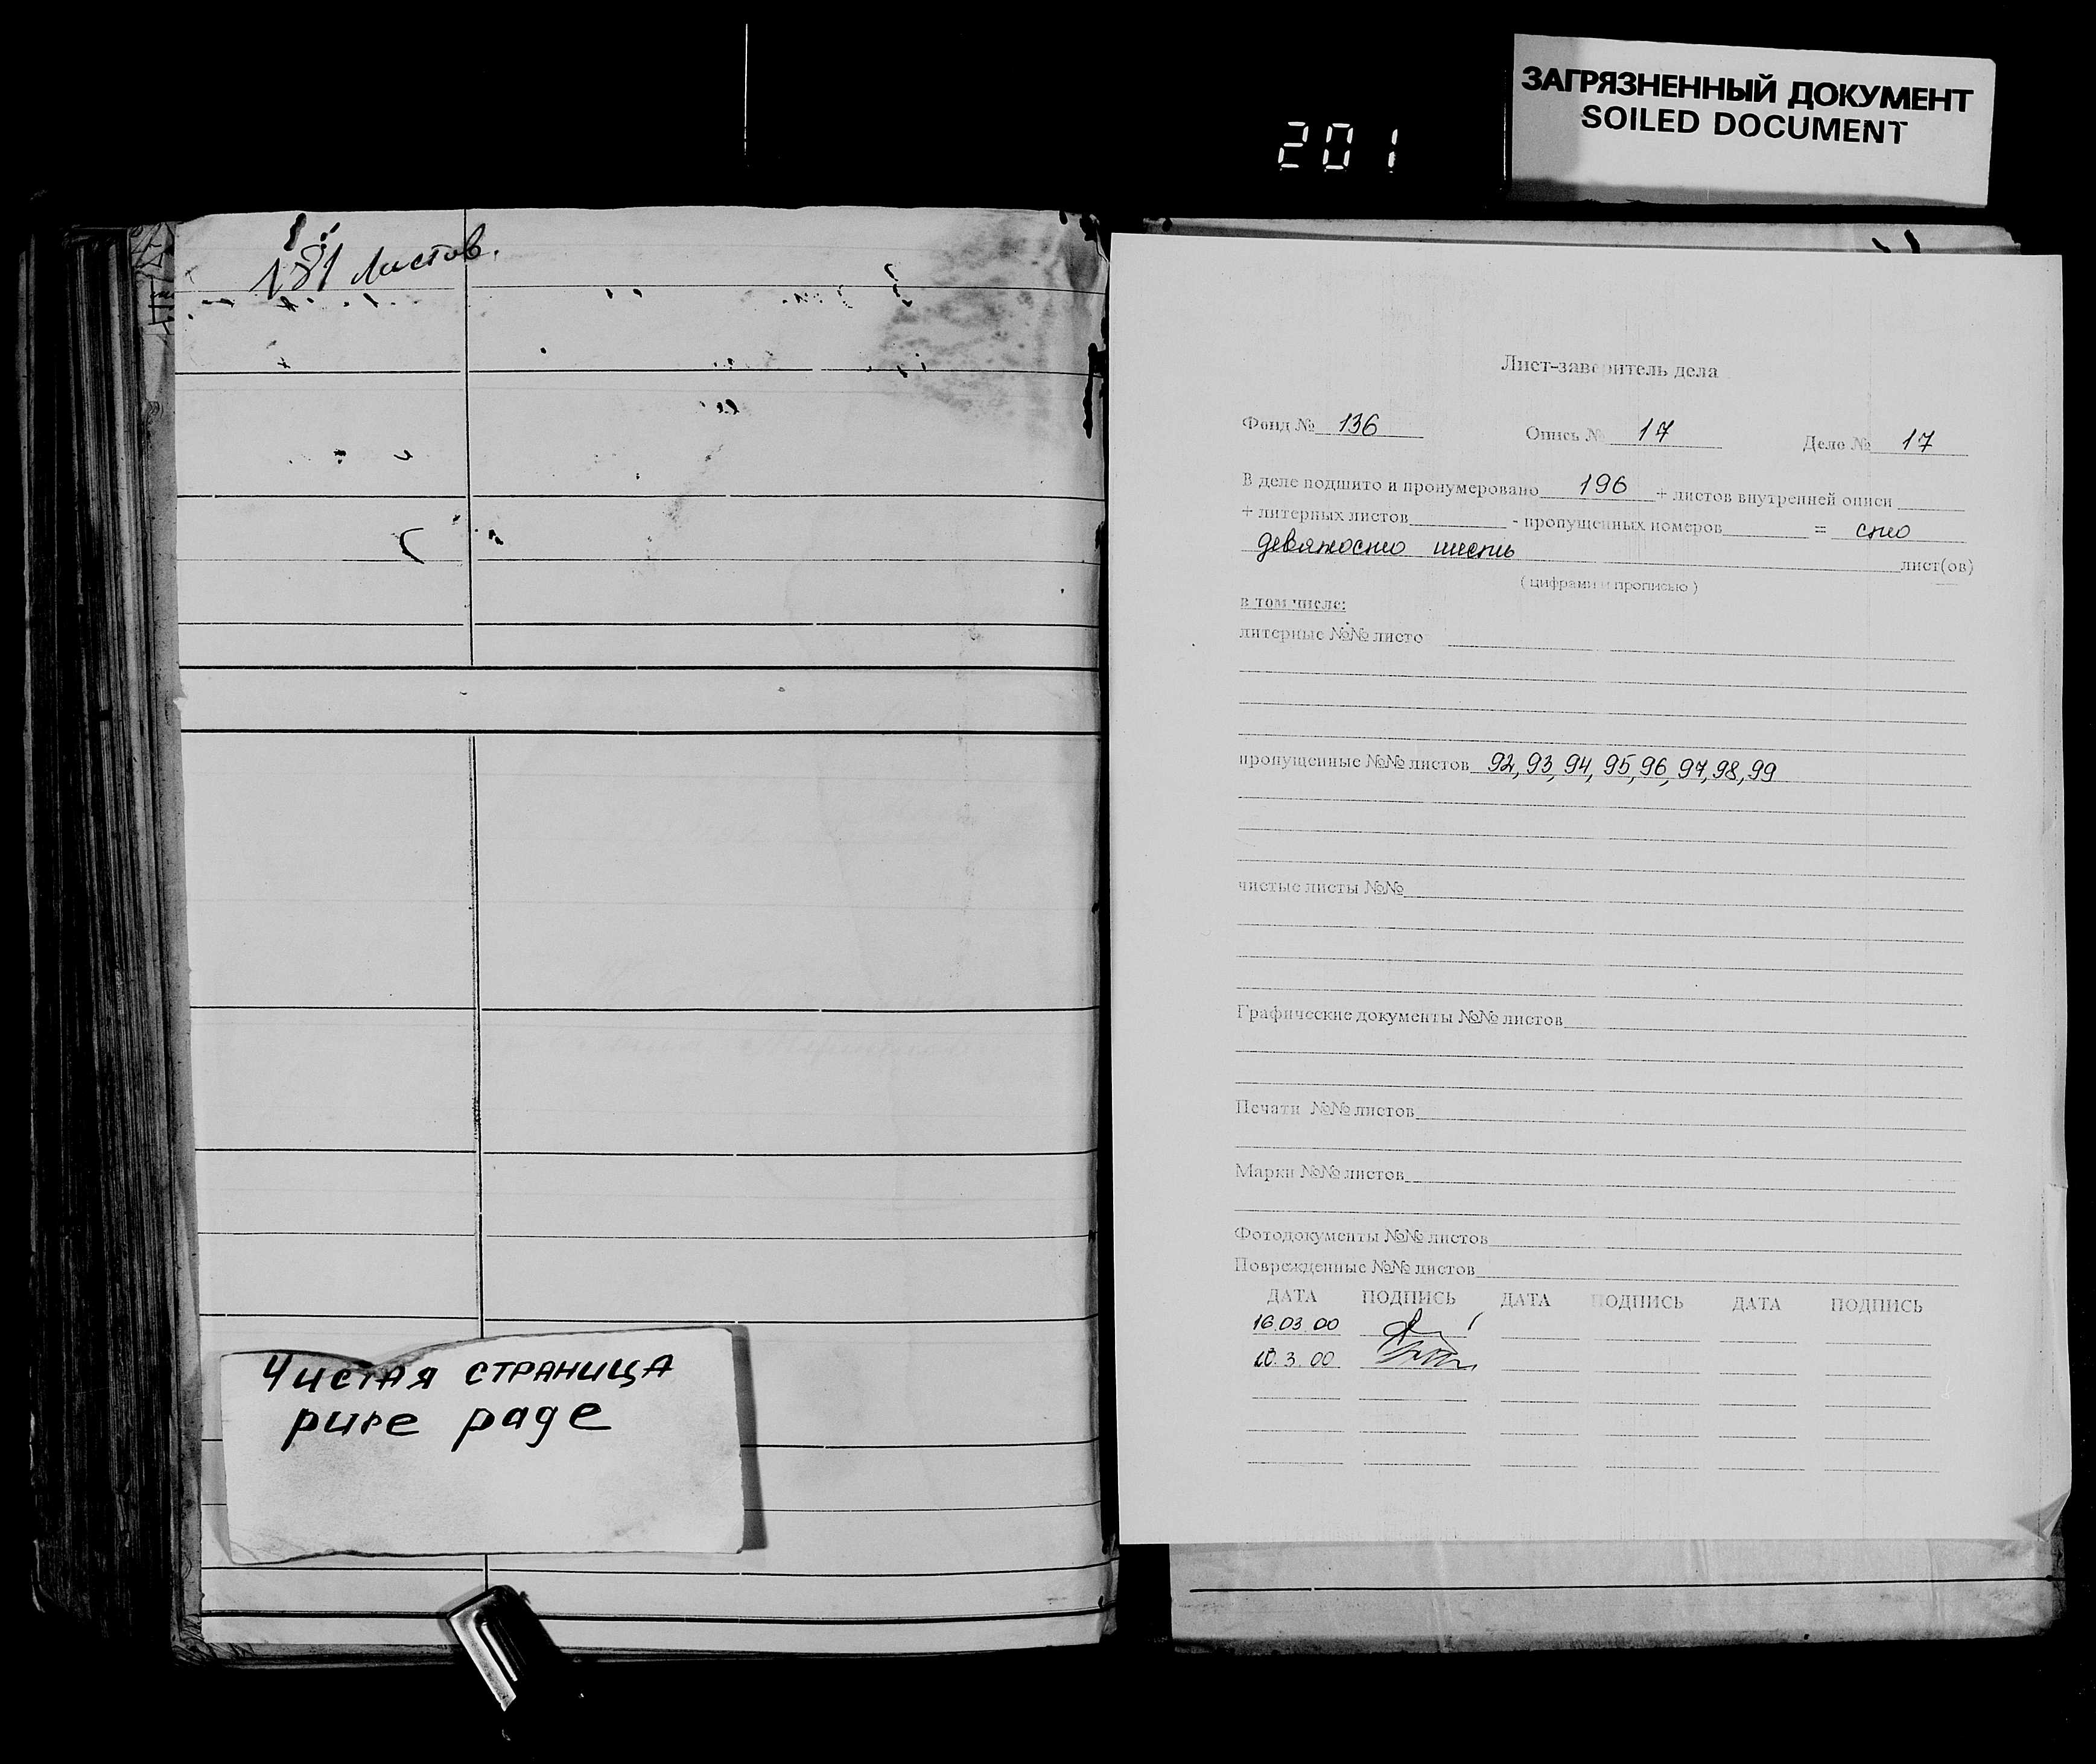 ЗАГРЯЗНЕННЫЙ ДОКУМЕНТ
SOILED DOCUMENT
201
181 листов.
Чистая страница
pure page
Лист-заверитель дела
Фонд № 136 Опись № 17 Дело № 17
В деле подшито и пронумеровано 196 + листов внутренней описи
+ литерных листов - пропущенных номеров = сто
девяносто шесть лист(ов)
(цифрами и прописью)
в том числе:
литерные №№ листо
пропущенные №№ листов 92, 93, 94, 95, 96, 97, 98, 99
чистые листы №№
Графические документы №№ листов
Печати №№ листов
Марки №№ листов
Фотодокументы №№ листов
Поврежденные №№ листов
ДАТА ПОДПИСЬ ДАТА ПОДПИСЬ ДАТА ПОДПИСЬ
16.03.00
20.3.00